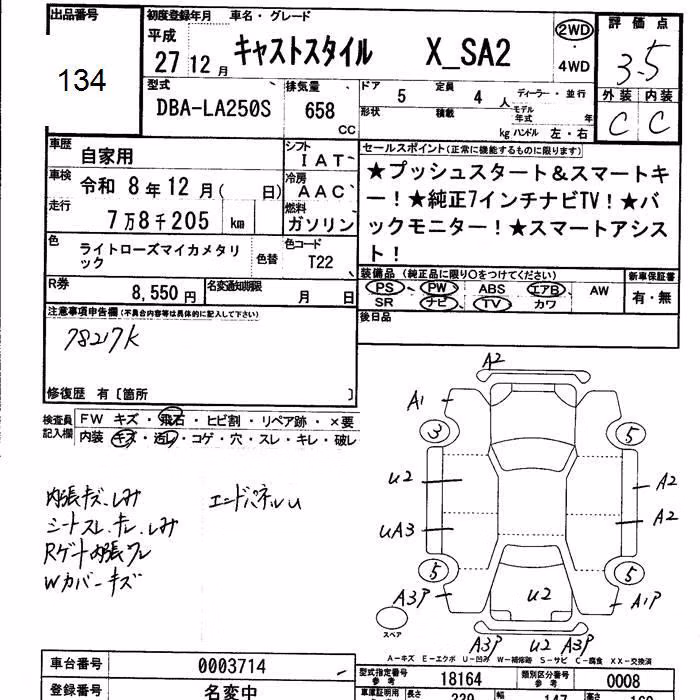 出品番号
134
初度登録年月 車名・グレード
平成 27 12月 キャストスタイル X_SA2
2WD
・
4WD
評価点
3.5
外装 内装
C C
型式 排気量 ドア 5 定員 4人 ディーラー・並行
DBA-LA250S 658 CC
形状 積載 kg モデル年式 年 ハンドル 左・右
車歴 自家用 シフト IAT
車検 令和 8年12月( 日) 冷房 AAC
走行 7万8千205 km 燃料 ガソリン
色 ライトローズマイカメタリック 色替 色コード T22
R券 8,550円 名変通知期限 月 日
セールスポイント(正常に機能するものに限ります)
★プッシュスタート&スマートキ
ー!★純正7インチナビTV!★バ
ックモニター!★スマートアシス
ト!
装備品 (純正品に限り○をつけてください) 新車保証書
PS PW ABS エアB AW 有・無
SR ナビ TV カワ
後日品
注意事項申告欄(不具合内容等は具体的に記入して下さい)
78217K
修復歴 有〔箇所 〕
検査員記入欄 FW キズ・飛石・ヒビ割・リペア跡・×要
内装 キズ・汚レ・コゲ・穴・スレ・キレ・破レ
内張キズ、しみ エンドパネルU
シートスレ、キレ、しみ
Rゲート内張ワレ
Wカバーキズ
A2
A1
3 5
U2 A2
UA3 A2
5 5
A3P U2 A1P
スペア
A3P U2 A3P
A-キズ E-エクボ U-凹み W-補修跡 S-サビ C-腐食 XX-交換済
車台番号 0003714
型式指定番号 参考 18164 類別区分番号 参考 0008
登録番号 名変中
車庫証明用 参考 長さ 339 幅 147 高さ 160